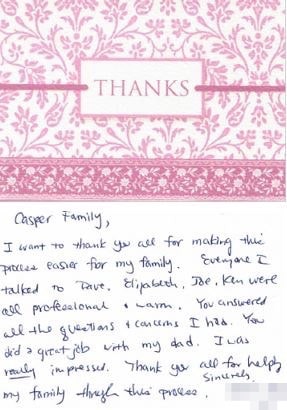 THANKS
Casper Family,
I want to thank you all for making this
process easier for my family. Everyone I
talked to Dave, Elizabeth, Joe, Ken were
all professional & warm. You answered
all the questions & concerns I had. You
did a great job with my dad. I was
really impressed. Thank you all for helping
my family through this process.
Sincerely,